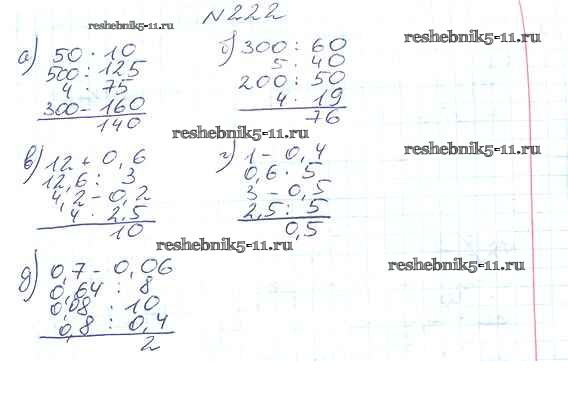 №222
reshebnik5-11.ru
а) 50 · 10
500 : 125
4 · 75
300 - 160
140
б) 300 : 60
5 · 40
200 : 50
4 · 19
76
reshebnik5-11.ru
reshebnik5-11.ru
reshebnik5-11.ru
в) 12 + 0,6
12,6 : 3
4,2 - 0,2
4 · 2,5
10
г) 1 - 0,4
0,6 · 5
3 - 0,5
2,5 : 5
0,5
reshebnik5-11.ru
reshebnik5-11.ru
д) 0,7 - 0,06
0,64 : 8
0,08 · 10
0,8 : 0,4
2